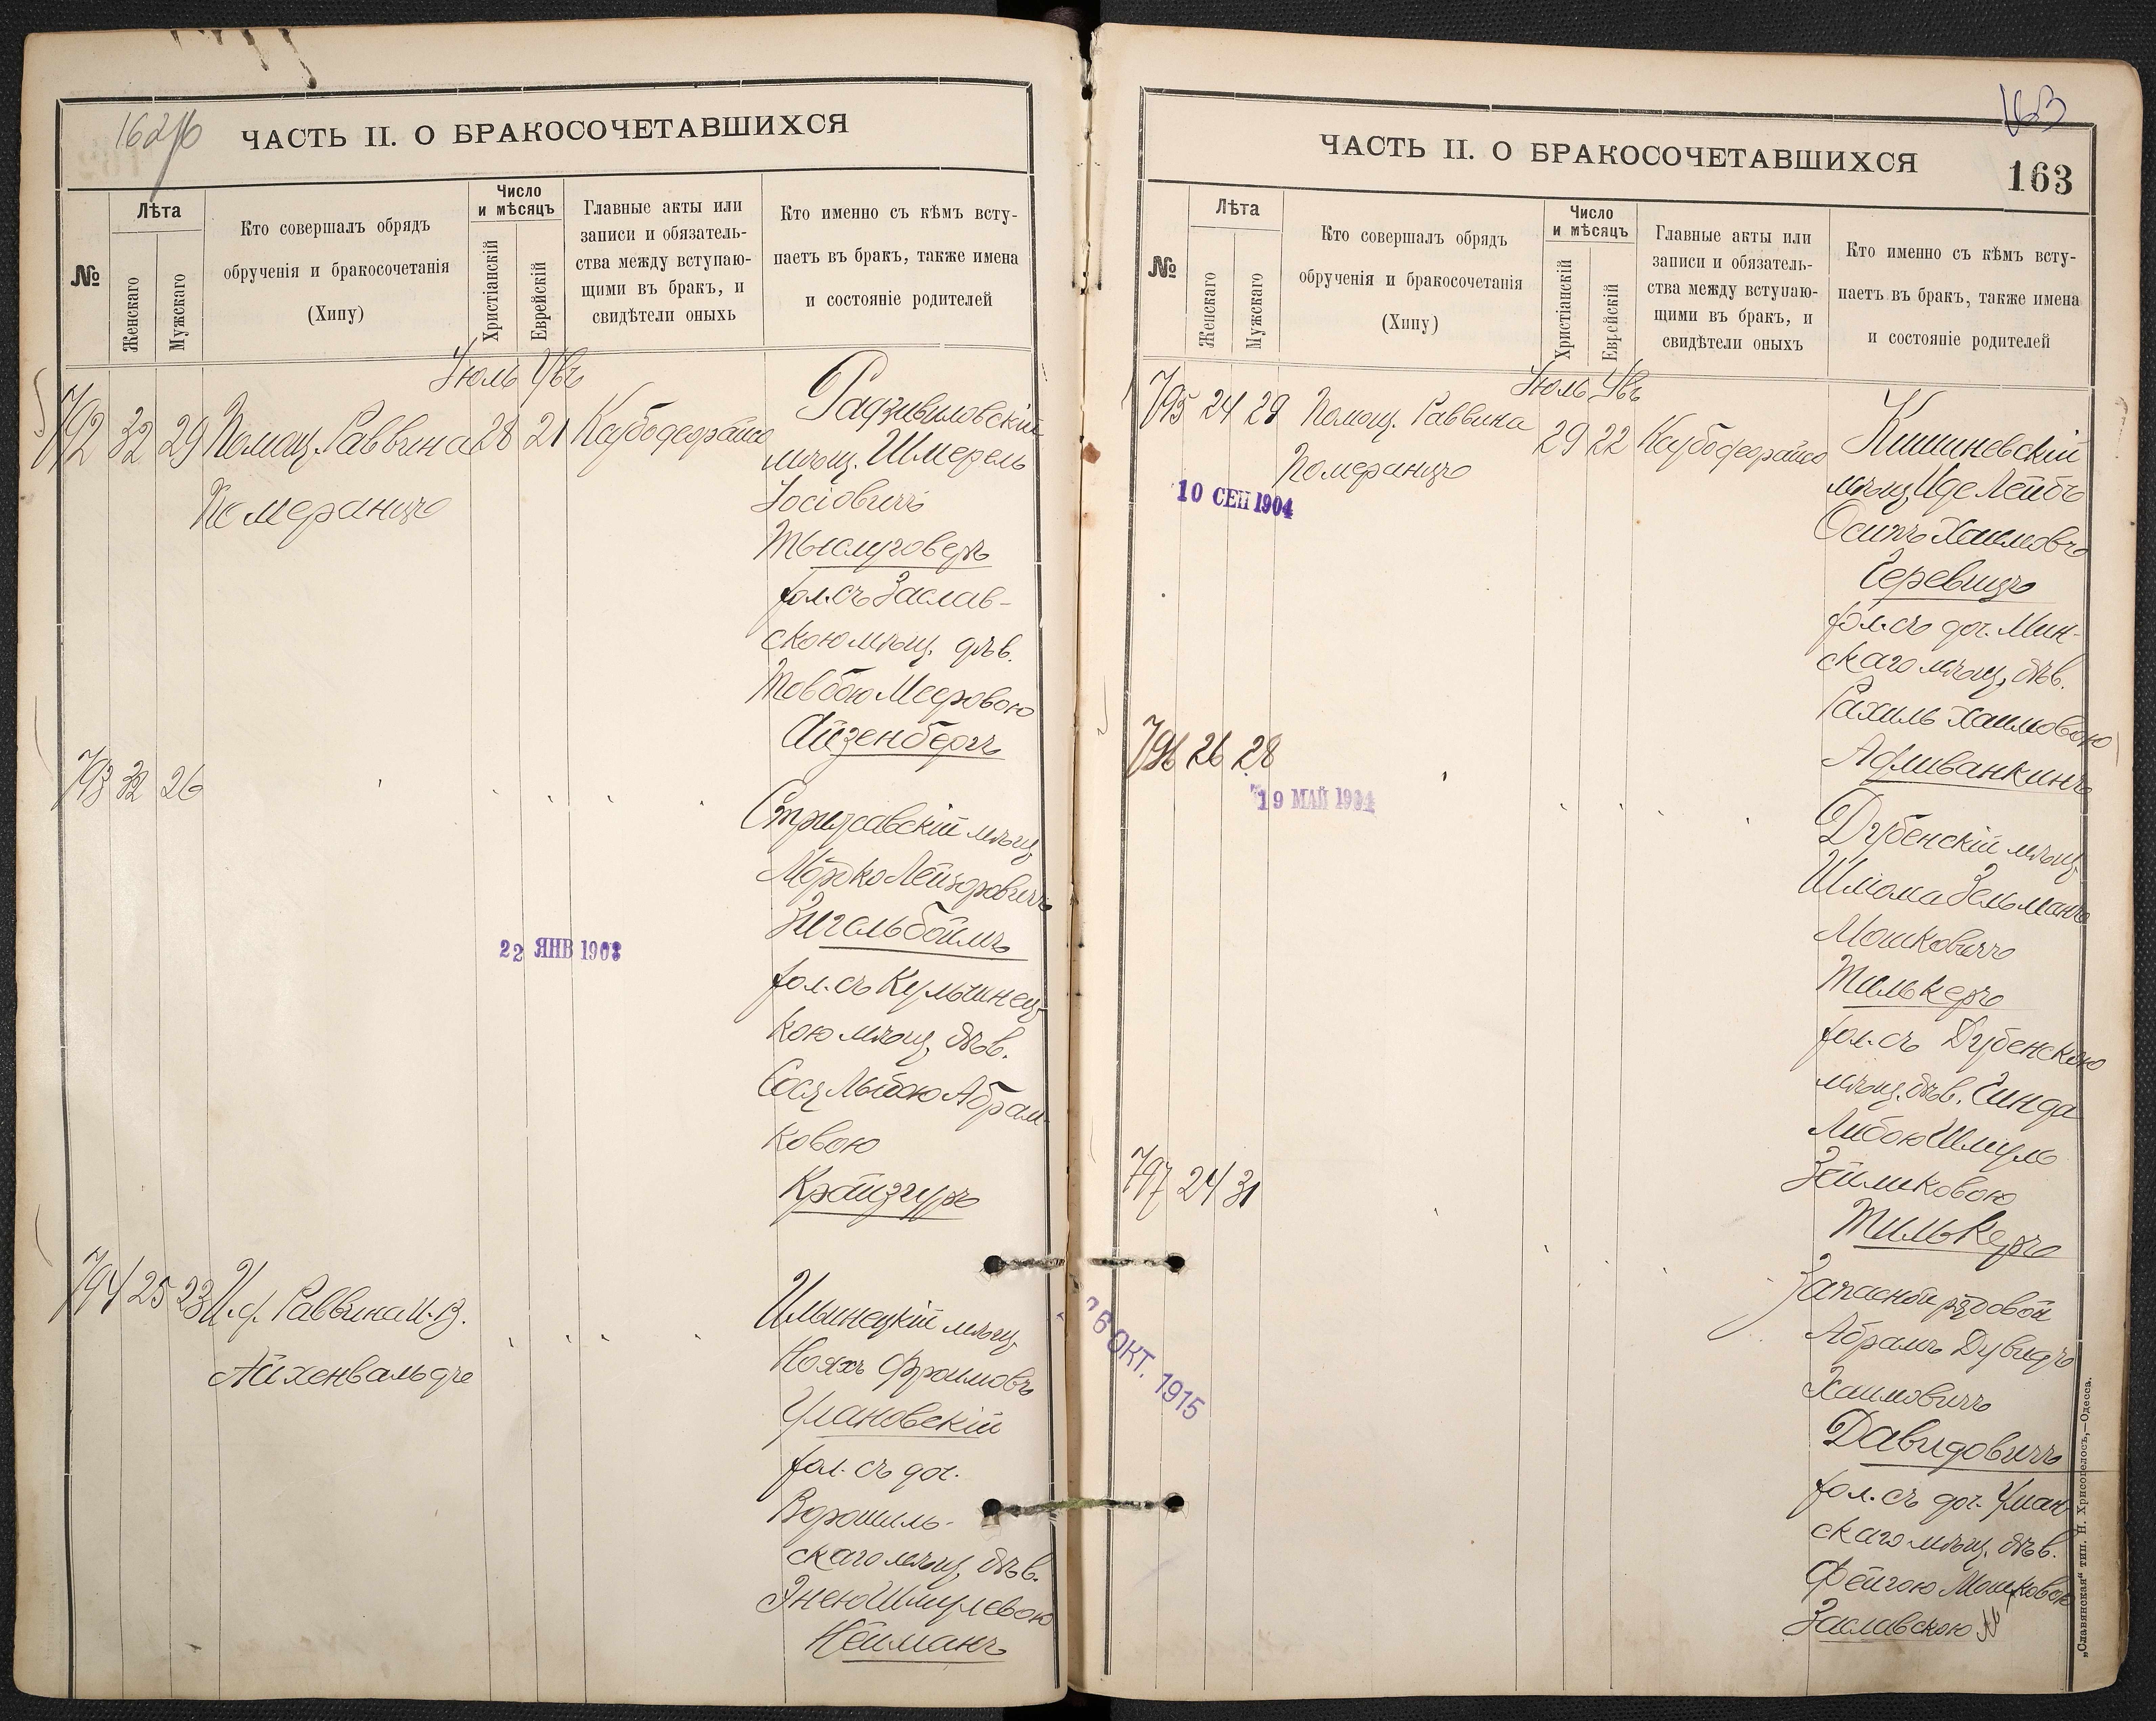 162 об
ЧАСТЬ II. О БРАКОСОЧЕТАВШИХСЯ
№
Лѣта
Женскаго
Мужскаго
Кто совершалъ обрядъ
обрученія и бракосочетанія
(Хипу)
Число
и мѣсяцъ
Христіанскій
Еврейскій
Главные акты или
записи и обязатель-
ства между вступаю-
щими въ бракъ, и
свидѣтели оныхъ
Кто именно съ кѣмъ всту-
паетъ въ бракъ, также имена
и состояніе родителей
Іюль Увъ
792 32 29 Помощ. Раввина 28 21
Померанцъ
Радзивиловскій
мѣщ. Шмерель
Іосіовичъ
хол. съ Заслав-
скою мѣщ. дѣв.
Товбою Мееровою
Айзенбергъ
793 32 26
22 ЯНВ 1903
Стрижавскій мѣщ.
Мордко Лейзоровичъ
Зигельбоймъ
хол. съ Кульчинец-
кою мѣщ. дѣв.
Абрам-
ковою
Крайзгуръ
794 25 23 И. д. Раввина И. В.
Айхенвальдъ
Ильинецкій мѣщ.
Нояхъ Фроимовъ
Улановскій
хол. съ доч.
Ворошиль-
скаго мѣщ. дѣв.
Энею Шмулевою
Нейманъ
163
ЧАСТЬ II. О БРАКОСОЧЕТАВШИХСЯ
163
№
Лѣта
Женскаго
Мужскаго
Кто совершалъ обрядъ
обрученія и бракосочетанія
(Хипу)
Число
и мѣсяцъ
Христіанскій
Еврейскій
Главные акты или
записи и обязатель-
ства между вступаю-
щими въ бракъ, и
свидѣтели оныхъ
Кто именно съ кѣмъ всту-
паетъ въ бракъ, также имена
и состояніе родителей
Іюль Увъ
795 24 29 Помощ. Раввина 29 22
Померанцъ
10 СЕН 1904
Кишиневскій
мѣщ. Иде Лейбъ
Осипъ Хаимовъ
Серевицъ
хол. съ доч. Мин-
скаго мѣщ. дѣв.
Рахиль Хаимовою
796 26 28
19 МАЙ 1904
Дубенскій мѣщ.
Шлома Зельманъ
Мошковичъ
Тилькеръ
хол. съ Дубенскою
мѣщ. дѣв. Синда
Либою Шмуль
Зейликовою
Тилькеръ
797 24 31
26 ОКТ. 1915
Запасной рядовой
Абрамъ Дувидъ
Хаимовичъ
Давидовичъ
хол. съ доч. Уман-
скаго мѣщ. дѣв.
Фейгою Мошковою
Заславскою
„Славянская“ тип. Н. Хрисогелосъ,—Одесса.